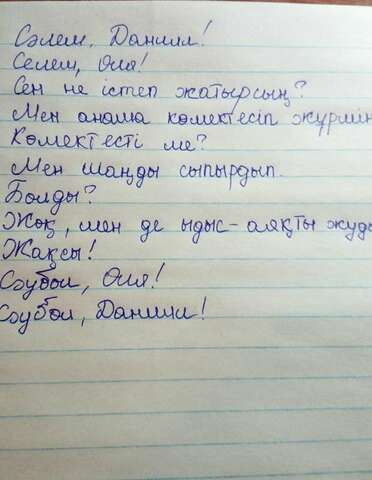 Сәлем, Данил!
Селем, Оля!
Сен не істеп жатырсың?
Мен анама көмектесіп жүрмін
Көмектесті ме?
Мен шаңды сыпырдып.
Болды?
Жоқ, мен де ыдыс-аяқты жуды
Жақсы!
Сәубол, Оля!
Сәубол, Данил!